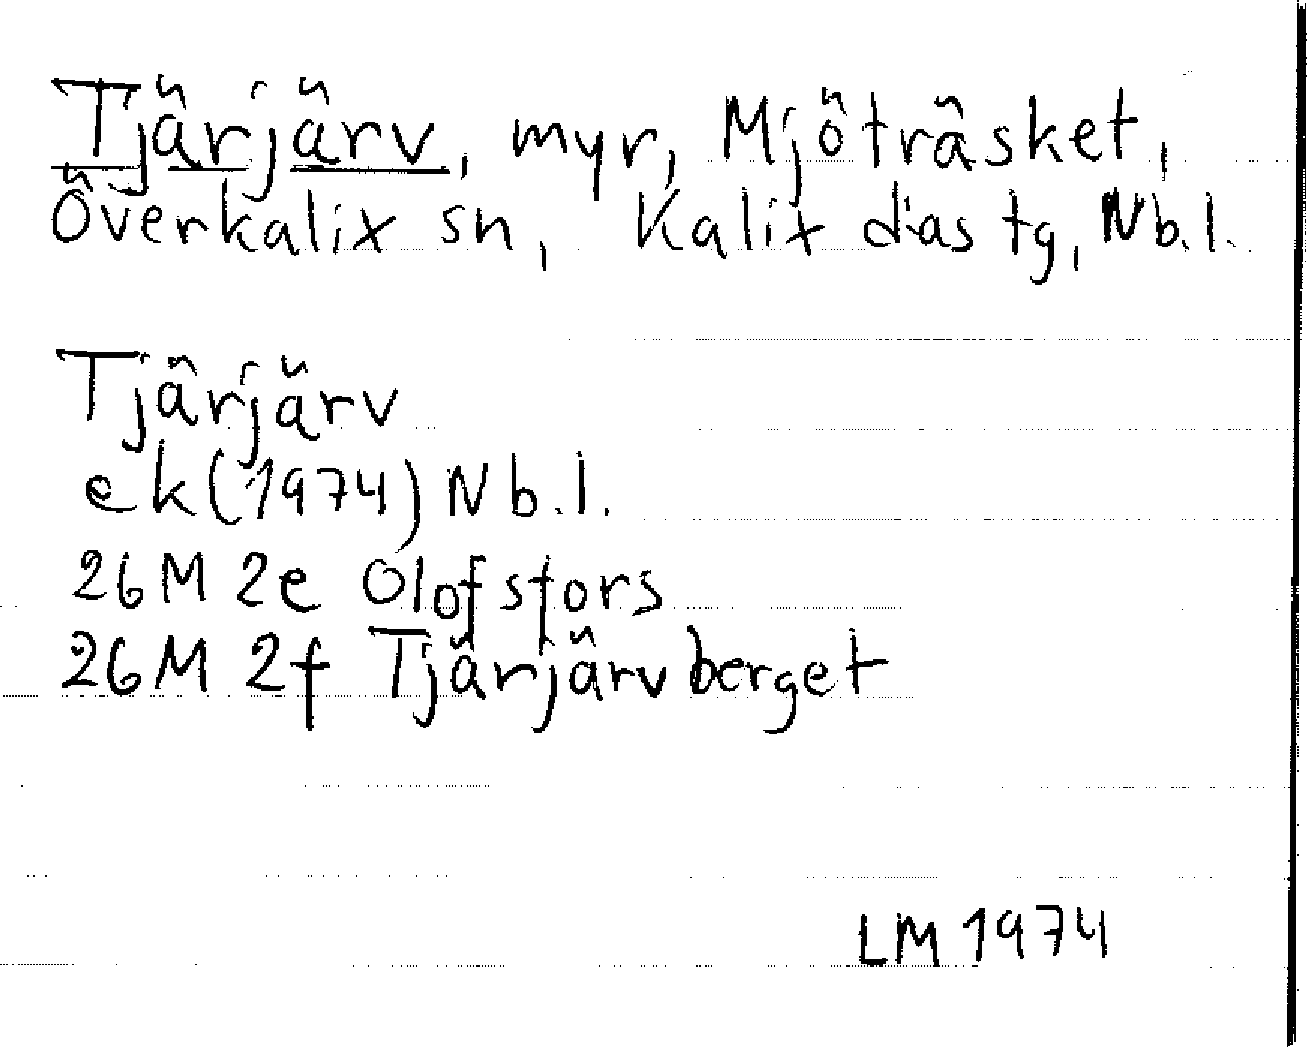 Tjärjärv, myr, Mjöträsket,
Överkalix sn, Kalix d:as tg, Nb.l.
Tjärjärv
ek(1974) Nb.l.
26M 2e Olofstors
26M 2f Tjärjärvberget
LM 1974